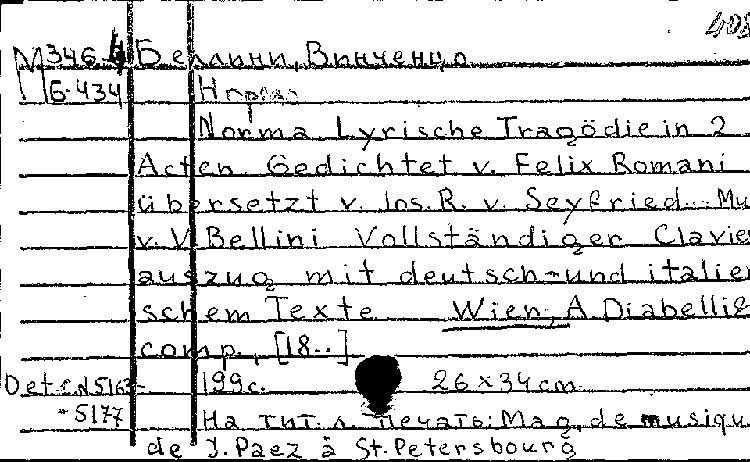 408
М346-4 Беллини, Винченцо
Б-434 Норма
Norma Lyrische Tragödie in 2
Acten Gedichtet v. Felix Romani
übersetzt v. Jos. R. v. Seyfried... Mu
v. V Bellini Vollständiger Clavie
auszug mit deutsch-und italie
schem Texte Wien, A Diabelli &
comp., [18..]
199с. 26 x 34 cm
5177 На тит. л. печать: Mag. de musiqu
de J. Paez à St. Petersbourg